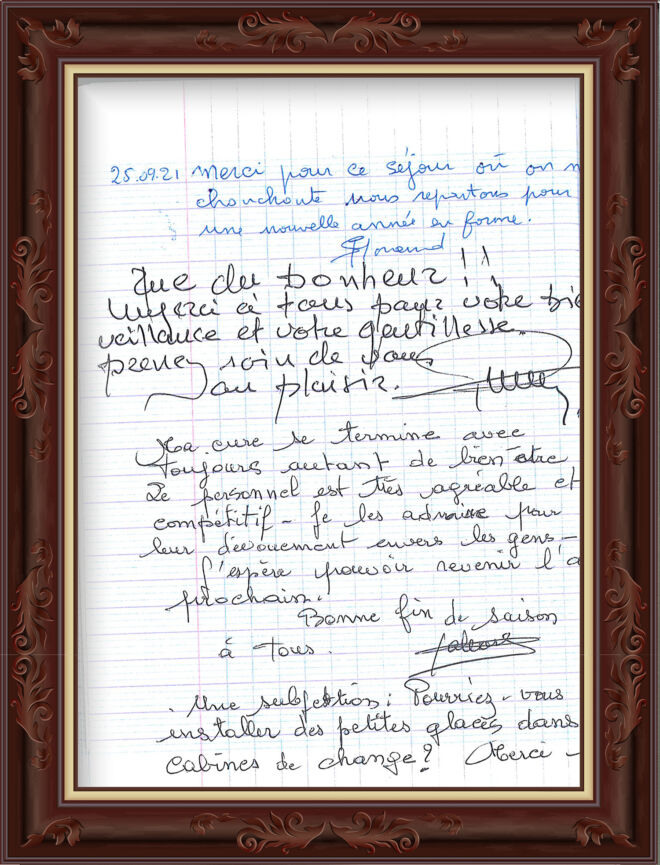 25.09.21 Merci pour ce séjour où on n
chouchoute nous repartons pour
une nouvelle année en forme.
Que du bonheur !!
Merci à tous pour votre bie
veillance et votre gentillesse.
prenez soin de vous
au plaisir.
Ma cure se termine avec
toujours autant de bien être
Le personnel est très agréable et
compétitif - Je les admire pour
leur dévouement envers les gens -
J'espère pouvoir revenir l'a
prochain.
Bonne fin de saison
à tous.
. Une : Pourriez-vous
installer des petites glaces dans
cabines de change ? Merci -